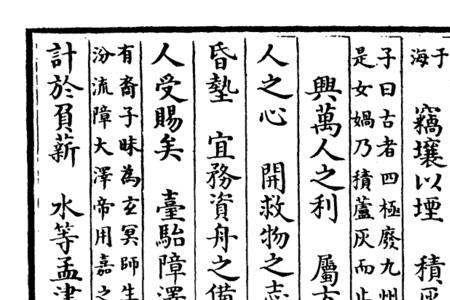 于
海
竊壤以堙 積
子曰古者四極廢九州
是女媧乃積蘆灰而止
興萬人之利 屬
人之心 開救物之志
昏墊 宜務資舟之備
人受賜矣 臺駘障澤
有裔子昧為玄冥師生
汾流障大澤帝用嘉之
計於負薪 水等孟津